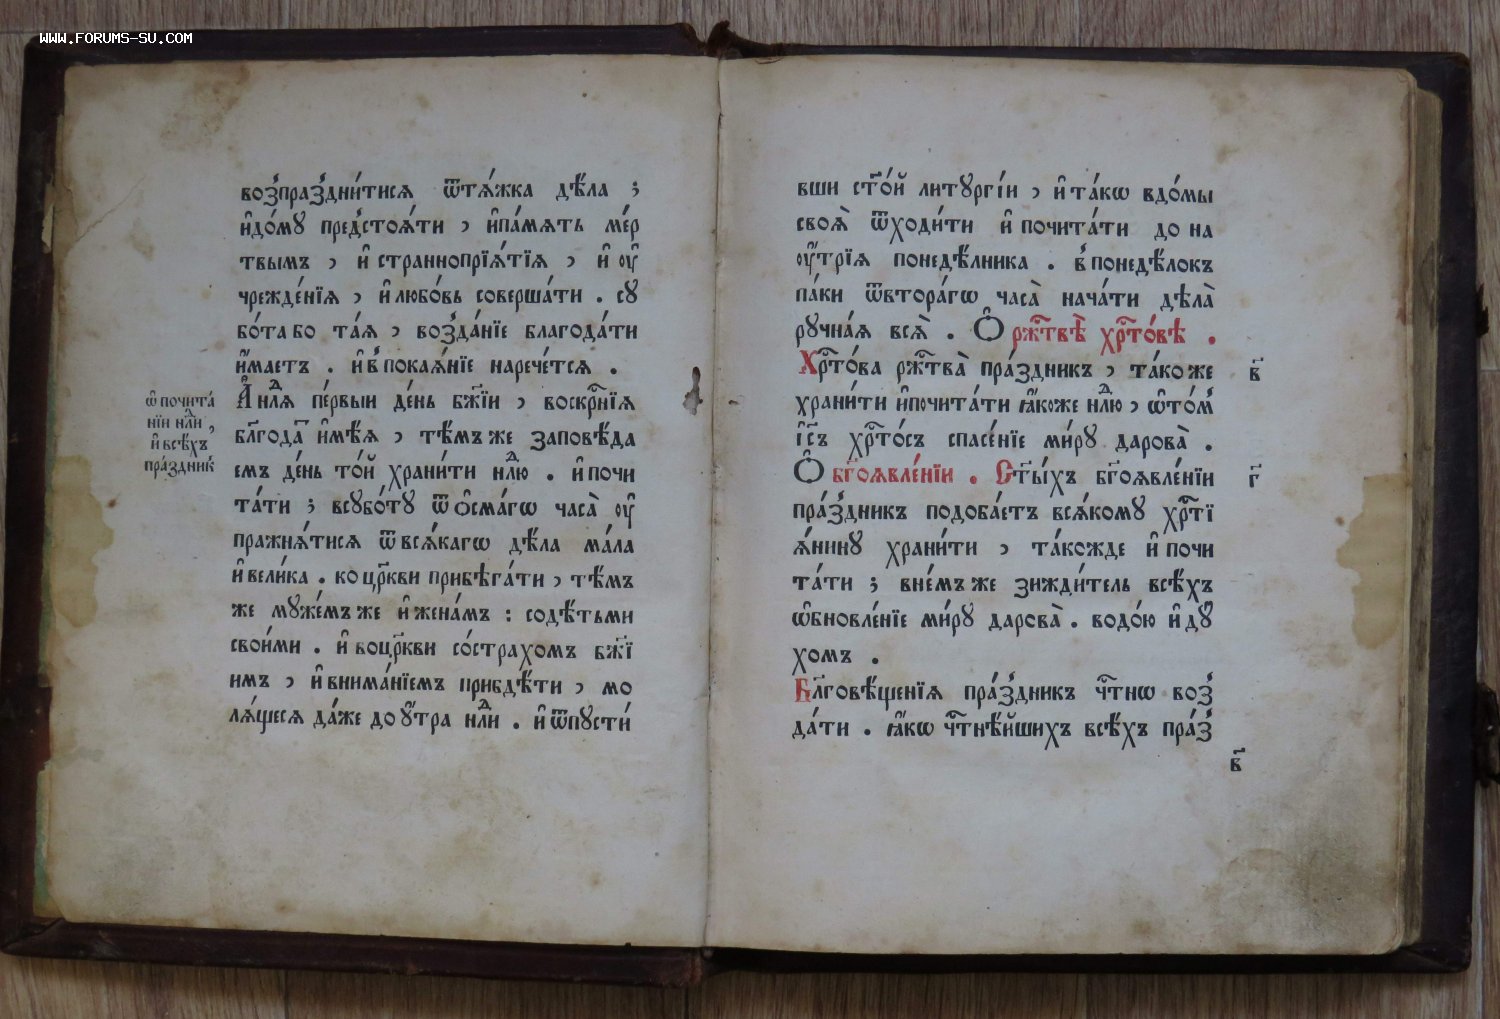 www.forums-su.com
воз̾праз̾дни́тисѧ ѿтѧ́жка дѣ́ла ;
и҆до́мꙋ пред̾стоѧ́ти , и҆па́мѧть ме́р
твымъ , и҆ страннопрїѧ́тїѧ , и҆ ᲂу҆
чрежде́нїѧ , и҆ любо́вь соверша́ти . сꙋ
бо́та бо та́ѧ , воз̾да́нїе благода́ти
и҆́маетъ . и҆ в̾ покаѧ́нїе нарече́тсѧ .
А҆ нлⷣѧ пе́рвыи де́нь бж҃їи , воскрⷭ҇нїѧ
бл҃года́ и҆мѣ́ѧ , тѣ́мъ же заповѣ́да
емъ де́нь то́й храни́ти нлⷣю . и҆ почи
та́ти ; всꙋбо́тꙋ ѿ ѻ҆сма́гѡ часа̀ ᲂу҆
пражнѧ́тисѧ ѿ всѧ́кагѡ дѣ́ла ма́ла
и҆ вели́ка . ко цр҃кви прибѣга́ти , тѣ́мъ
же мꙋже́мъ же и҆ жена́мъ : содѣ́тьми
свои́ми . и҆ воцр҃кви со́страхомъ бж҃їі
имъ , и҆ внима́нїемъ прибдѣ́ти , мо
лѧ́щесѧ да́же до ᲂу҆́тра нлⷣи . и҆ ѿпꙋсти́
ѡ҆ почита́
нїи нлⷣи ,
и҆ всѣ́хъ
пра́здник̾
вши ст҃о́й литꙋргі́и , и҆ та́кѡ вдо́мы
своѧ̀ ѿходи́ти и҆ почита́ти до на
ᲂу҆́трїѧ понедѣ́лника . в̾ понедѣ́локъ
па́ки ѿвтора́гѡ часа̀ нача́ти дѣла̀
рꙋчна́ѧ всѧ̀ . Ѻ҆ ржⷭ҇твѣ̀ хрⷭ҇то́вѣ .
Хрⷭ҇то́ва ржⷭ҇тва̀ пра́здникъ , та́коже
в҃
храни́ти и҆почита́ти ꙗ҆́коже нлⷣю , ѡ҆то́м̾
і҆с҃ъ хрⷭ҇то́съ спасе́нїе ми́рꙋ дарова̀ .
Ѻ҆ бг҃оѧвле́нїи . Ст҃ы́хъ бг҃оѧвле́нїи
г҃
пра́з̾дникъ подоба́етъ всѧ́комꙋ хрⷭ҇тї
ѧ́нинꙋ храни́ти , та́кожде и҆ почи
та́ти ; вне́мъ же зижди́тель всѣ́хъ
ѡ҆бновле́нїе ми́рꙋ дарова̀ . водо́ю и҆ дꙋ́
хомъ .
Бл҃говѣ́щенїѧ пра́з̾дникъ чтⷭ҇нѡ воз̾
да́ти . ꙗ҆́кѡ чтⷭ҇нѣ́йшихъ всѣ́хъ пра́з̾
в҃